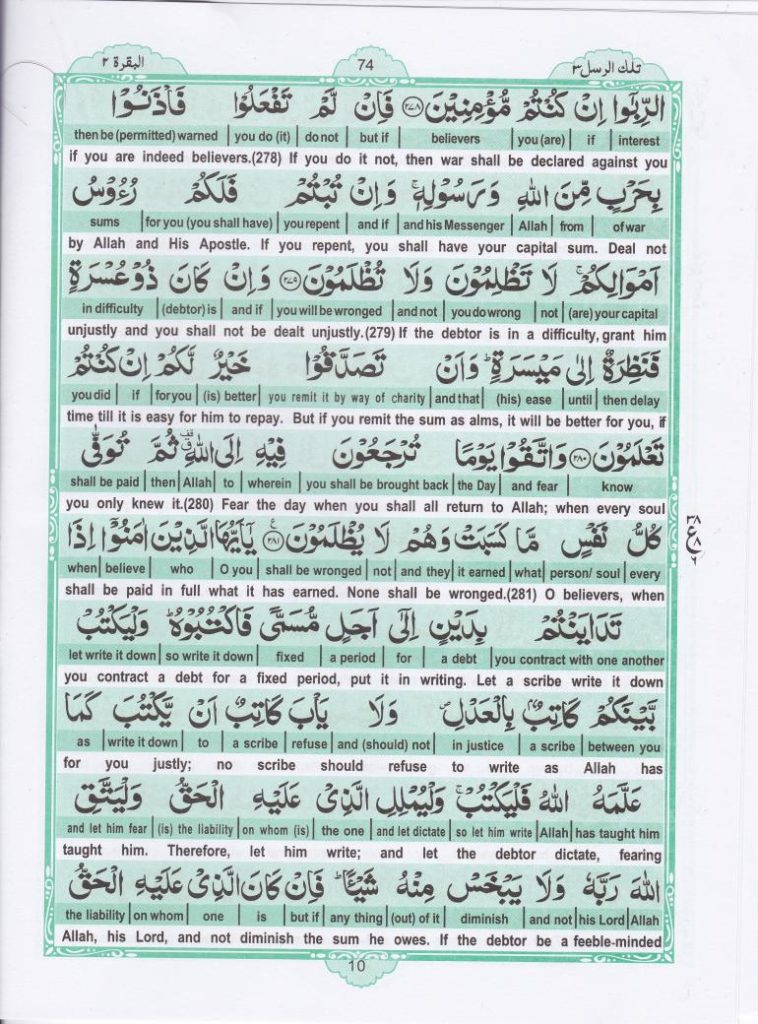 البقرة ٢ 74 تلك الرسل ٣
الرِّبٰۤوا اِنْ كُنْتُمْ مُّؤْمِنِيْنَ ﴿۲۷۸﴾ فَاِنْ لَّمْ تَفْعَلُوْا فَاْذَنُوْا
then be (permitted) warned | you do (it) | do not | but if | believers | you (are) | if | interest
if you are indeed believers.(278) If you do it not, then war shall be declared against you
بِحَرْبٍ مِّنَ اللّٰهِ وَرَسُوْلِهٖ ۚ وَاِنْ تُبْتُمْ فَلَكُمْ رُءُوْسُ
sums | for you (you shall have) | you repent | and if | and his Messenger | Allah | from | of war
by Allah and His Apostle. If you repent, you shall have your capital sum. Deal not
اَمْوَالِكُمْ ۚ لَا تَظْلِمُوْنَ وَلَا تُظْلَمُوْنَ ﴿۲۷۹﴾ وَاِنْ كَانَ ذُوْ عُسْرَةٍ
in difficulty | (debtor) is | and if | you will be wronged | and not | you do wrong | not | (are) your capital
unjustly and you shall not be dealt unjustly.(279) If the debtor is in a difficulty, grant him
فَنَظِرَةٌ اِلٰى مَيْسَرَةٍ ؕ وَاَنْ تَصَدَّقُوْا خَيْرٌ لَّكُمْ اِنْ كُنْتُمْ
you did | if | for you | (is) better | you remit it by way of charity | and that | (his) ease | until | then delay
time till it is easy for him to repay. But if you remit the sum as alms, it will be better for you, if
تَعْلَمُوْنَ ﴿۲۸۰﴾ وَاتَّقُوْا يَوْمًا تُرْجَعُوْنَ فِيْهِ اِلَى اللّٰهِ ثُمَّ تُوَفّٰى
shall be paid | then | Allah | to | wherein | you shall be brought back | the Day | and fear | know
you only knew it.(280) Fear the day when you shall all return to Allah; when every soul
كُلُّ نَفْسٍ مَّا كَسَبَتْ وَهُمْ لَا يُظْلَمُوْنَ ﴿۲۸۱﴾ يٰۤاَيُّهَا الَّذِيْنَ اٰمَنُوْۤا اِذَا
when | believe | who | O you | shall be wronged | not | and they | it earned | what | person/ soul | every
shall be paid in full what it has earned. None shall be wronged.(281) O believers, when
تَدَايَنْتُمْ بِدَيْنٍ اِلٰۤى اَجَلٍ مُّسَمًّى فَاكْتُبُوْهُ ؕ وَلْيَكْتُبْ
let write it down | so write it down | fixed | a period | for | a debt | you contract with one another
you contract a debt for a fixed period, put it in writing. Let a scribe write it down
بَّيْنَكُمْ كَاتِبٌۢ بِالْعَدْلِ ۪ وَلَا يَاْبَ كَاتِبٌ اَنْ يَّكْتُبَ كَمَا
as | write it down | to | a scribe | refuse | and (should) not | in justice | a scribe | between you
for you justly; no scribe should refuse to write as Allah has
عَلَّمَهُ اللّٰهُ فَلْيَكْتُبْ ۚ وَلْيُمْلِلِ الَّذِيْ عَلَيْهِ الْحَقُّ وَلْيَتَّقِ
and let him fear | (is) the liability | on whom (is) | the one | and let dictate | so let him write | Allah | has taught him
taught him. Therefore, let him write; and let the debtor dictate, fearing
اللّٰهَ رَبَّهٗ وَلَا يَبْخَسْ مِنْهُ شَيْئًا ؕ فَاِنْ كَانَ الَّذِيْ عَلَيْهِ الْحَقُّ
the liability | on whom | one | is | but if | any thing | (out) of it | diminish | and not | his Lord | Allah
Allah, his Lord, and not diminish the sum he owes. If the debtor be a feeble-minded
10